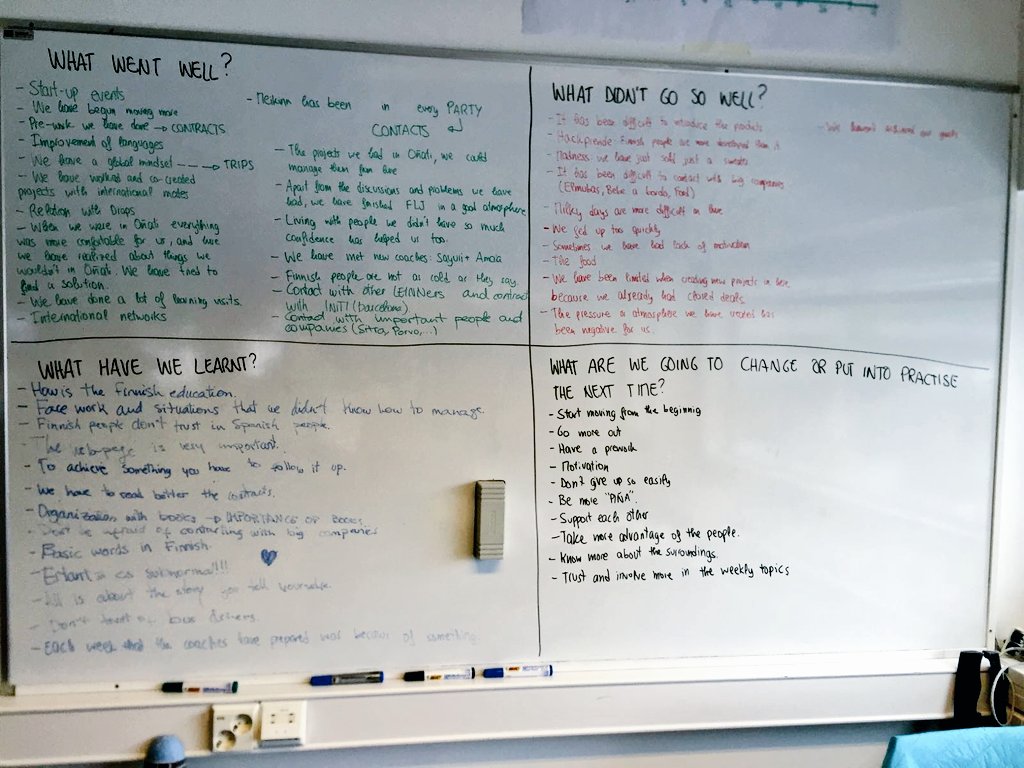 WHAT WENT WELL?
- Start-up events
- We have begun moving more
- Pre-work we have done → CONTRACTS
- Improvement of languages
- We have a global mindset ---→ TRIPS
- We have worked and co-created
projects with international mates
- Relation with Drops
- When we were in Oñati everything
was more comfortable for us, and here
we have realized about things we
wouldn't in Oñati. We have tried to
find a solution.
- We have done a lot of learning visits.
- International networks
- has been in every PARTY
CONTACTS
- The projects we had in Oñati, we could
manage them from here
- Apart from the discussions and problems we have
had, we have finished FLJ in a good atmosphere
- Living with people we didn't have so much
confidence has helped us too.
- We have met new coaches: Sayuri + Amaia
- Finnish people are not as cold as they say
- Contact with other LEINNers and contract
with INIT! (Barcelona)
- Contact with important people and
companies (Sitra, Porvo,...)
WHAT DIDN'T GO SO WELL?
- It has been difficult to introduce the products
- Finnish people are more developed than it
- Madness we have just sold just a sweater
- It has been difficult to contact with big companies
- Milky days are more difficult in here
- We get up too quickly
- Sometimes we have had lack of motivation
- The food
- We have been limited when creating new projects in here,
because we already had closed deals.
- The pressure or atmosphere we have created has
been negative for us.
- We our goals
WHAT HAVE WE LEARNT?
- How is the Finnish education.
- Face work and situations that we didn't know how to manage.
- Finnish people don't trust in Spanish people.
- The webpage is very important.
- To achieve something you have to follow it up.
- We have to read better the contracts.
- Organization with books → IMPORTANCE OF BOOKS
- Don't be afraid of contacting with big companies
- Basic words in Finnish.
- is as subnormal!!!!
- All is about the story you tell yourself.
- Don't trust of bus drivers.
- Each week that the coaches have prepared was because of something.
WHAT ARE WE GOING TO CHANGE OR PUT INTO PRACTISE
THE NEXT TIME?
- Start moving from the beginnig
- Go more out
- Have a prework
- Motivation
- Don't give up so easily
- Be more "PIÑA".
- Support each other
- Take more advantage of the people.
- Know more about the surroundings.
- Trust and involve more in the weekly topics